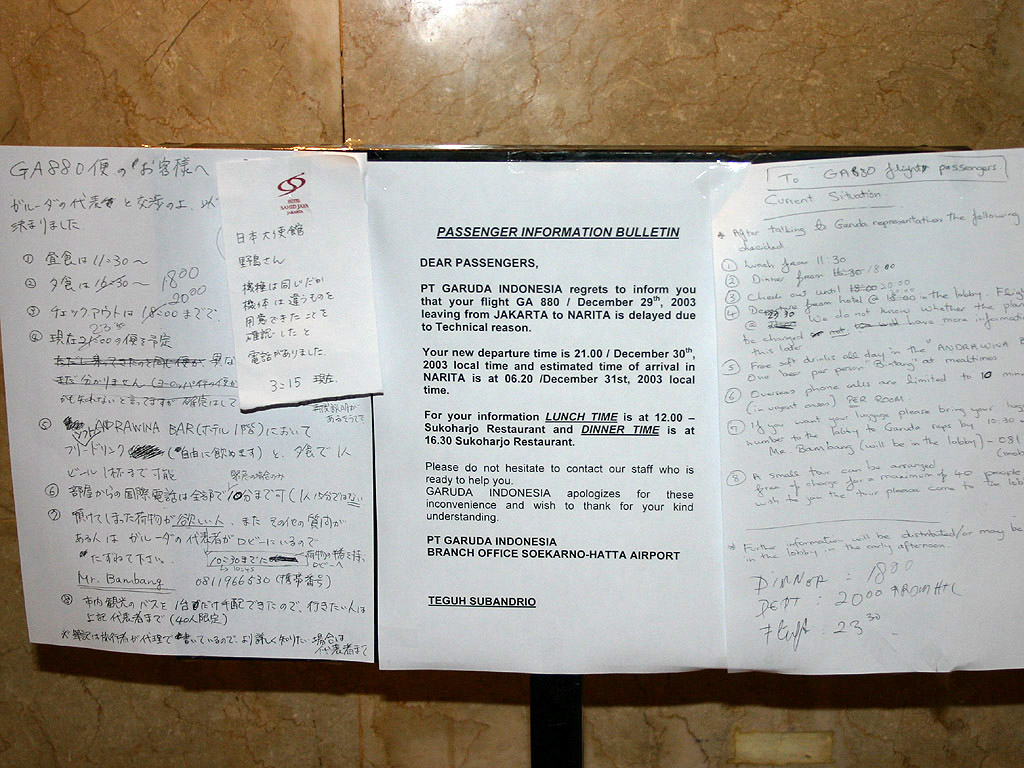 GA880便のお客様へ
ガルーダの代表者と交渉の上、以
決まりました
① 昼食は11:30～
② 夕食は16:30～ 18:00
20:00
③ チェックアウトは18:00までで
23:30
④ 現在21:00の便を予定
まだ分かりません
⑤ ANDRAWINA BAR(ホテル1階)において
フリードリンク (自由に飲めます)と、夕食で1人
ビール1杯まで可能 緊急の場合のみ
⑥ 部屋からの国際電話は全部で10分まで可(1人15分ではない)
⑦ 預けてしまった荷物が欲しい人、また その他の質問が
ある人は ガルーダの代表者がロビーにいるので
たずねて下さい。 10:30までに 荷物の番号を持ってロビーへ
10:45
Mr. Bambang 0811966530 (携帯番号)
⑧ 市内観光のバスを1台だけ手配できたので、行きたい人は
上記代表者まで(40人限定)
より詳しく知りたい場合は
代表者まで
HOTEL
SAHID JAYA
JAKARTA
日本大使館
野島さん
機種は同じだが
機体は違うものを
用意できたことを
確認したと
電話がありました.
3:15 現在.
PASSENGER INFORMATION BULLETIN
DEAR PASSENGERS,
PT GARUDA INDONESIA regrets to inform you
that your flight GA 880 / December 29th, 2003
leaving from JAKARTA to NARITA is delayed due
to Technical reason.
Your new departure time is 21.00 / December 30th,
2003 local time and estimated time of arrival in
NARITA is at 06.20 /December 31st, 2003 local
time.
For your information LUNCH TIME is at 12.00 –
Sukoharjo Restaurant and DINNER TIME is at
16.30 Sukoharjo Restaurant.
Please do not hesitate to contact our staff who is
ready to help you.
GARUDA INDONESIA apologizes for these
inconvenience and wish to thank for your kind
understanding.
PT GARUDA INDONESIA
BRANCH OFFICE SOEKARNO-HATTA AIRPORT
TEGUH SUBANDRIO
To GA880 flight passengers
Current Situation
* After talking to Garuda representation the following
decided
① Lunch from 11:30
② Dinner from 16:30 18:00
③ Check out until 18:00 20:00
④ Departure from hotel @ 18:00 in the lobby. Flight
@ 23:30 We do not know whether the plane
be changed or not have more information
this later
⑤ Free soft drinks all day in the "ANDRAWINA B
One beer per person "Bintang" at mealtimes
⑥ Overseas phone calls are limited to 10 min
(in urgent cases) PER ROOM
⑦ If you want your luggage please bring your lugg
number to the lobby to Garuda reps by 10:30 -
Mr. Bambang (will be in the lobby) - 081
(mob
⑧ A small tour can be arranged
free of charge for a maximum of 40 people
wish to join the tour please come to the lob
* Further information will be distributed/or may be
in the lobby in the early afternoon.
DINNER : 18:00
DEPT : 20:00 FROM HTL
Flight 23:30